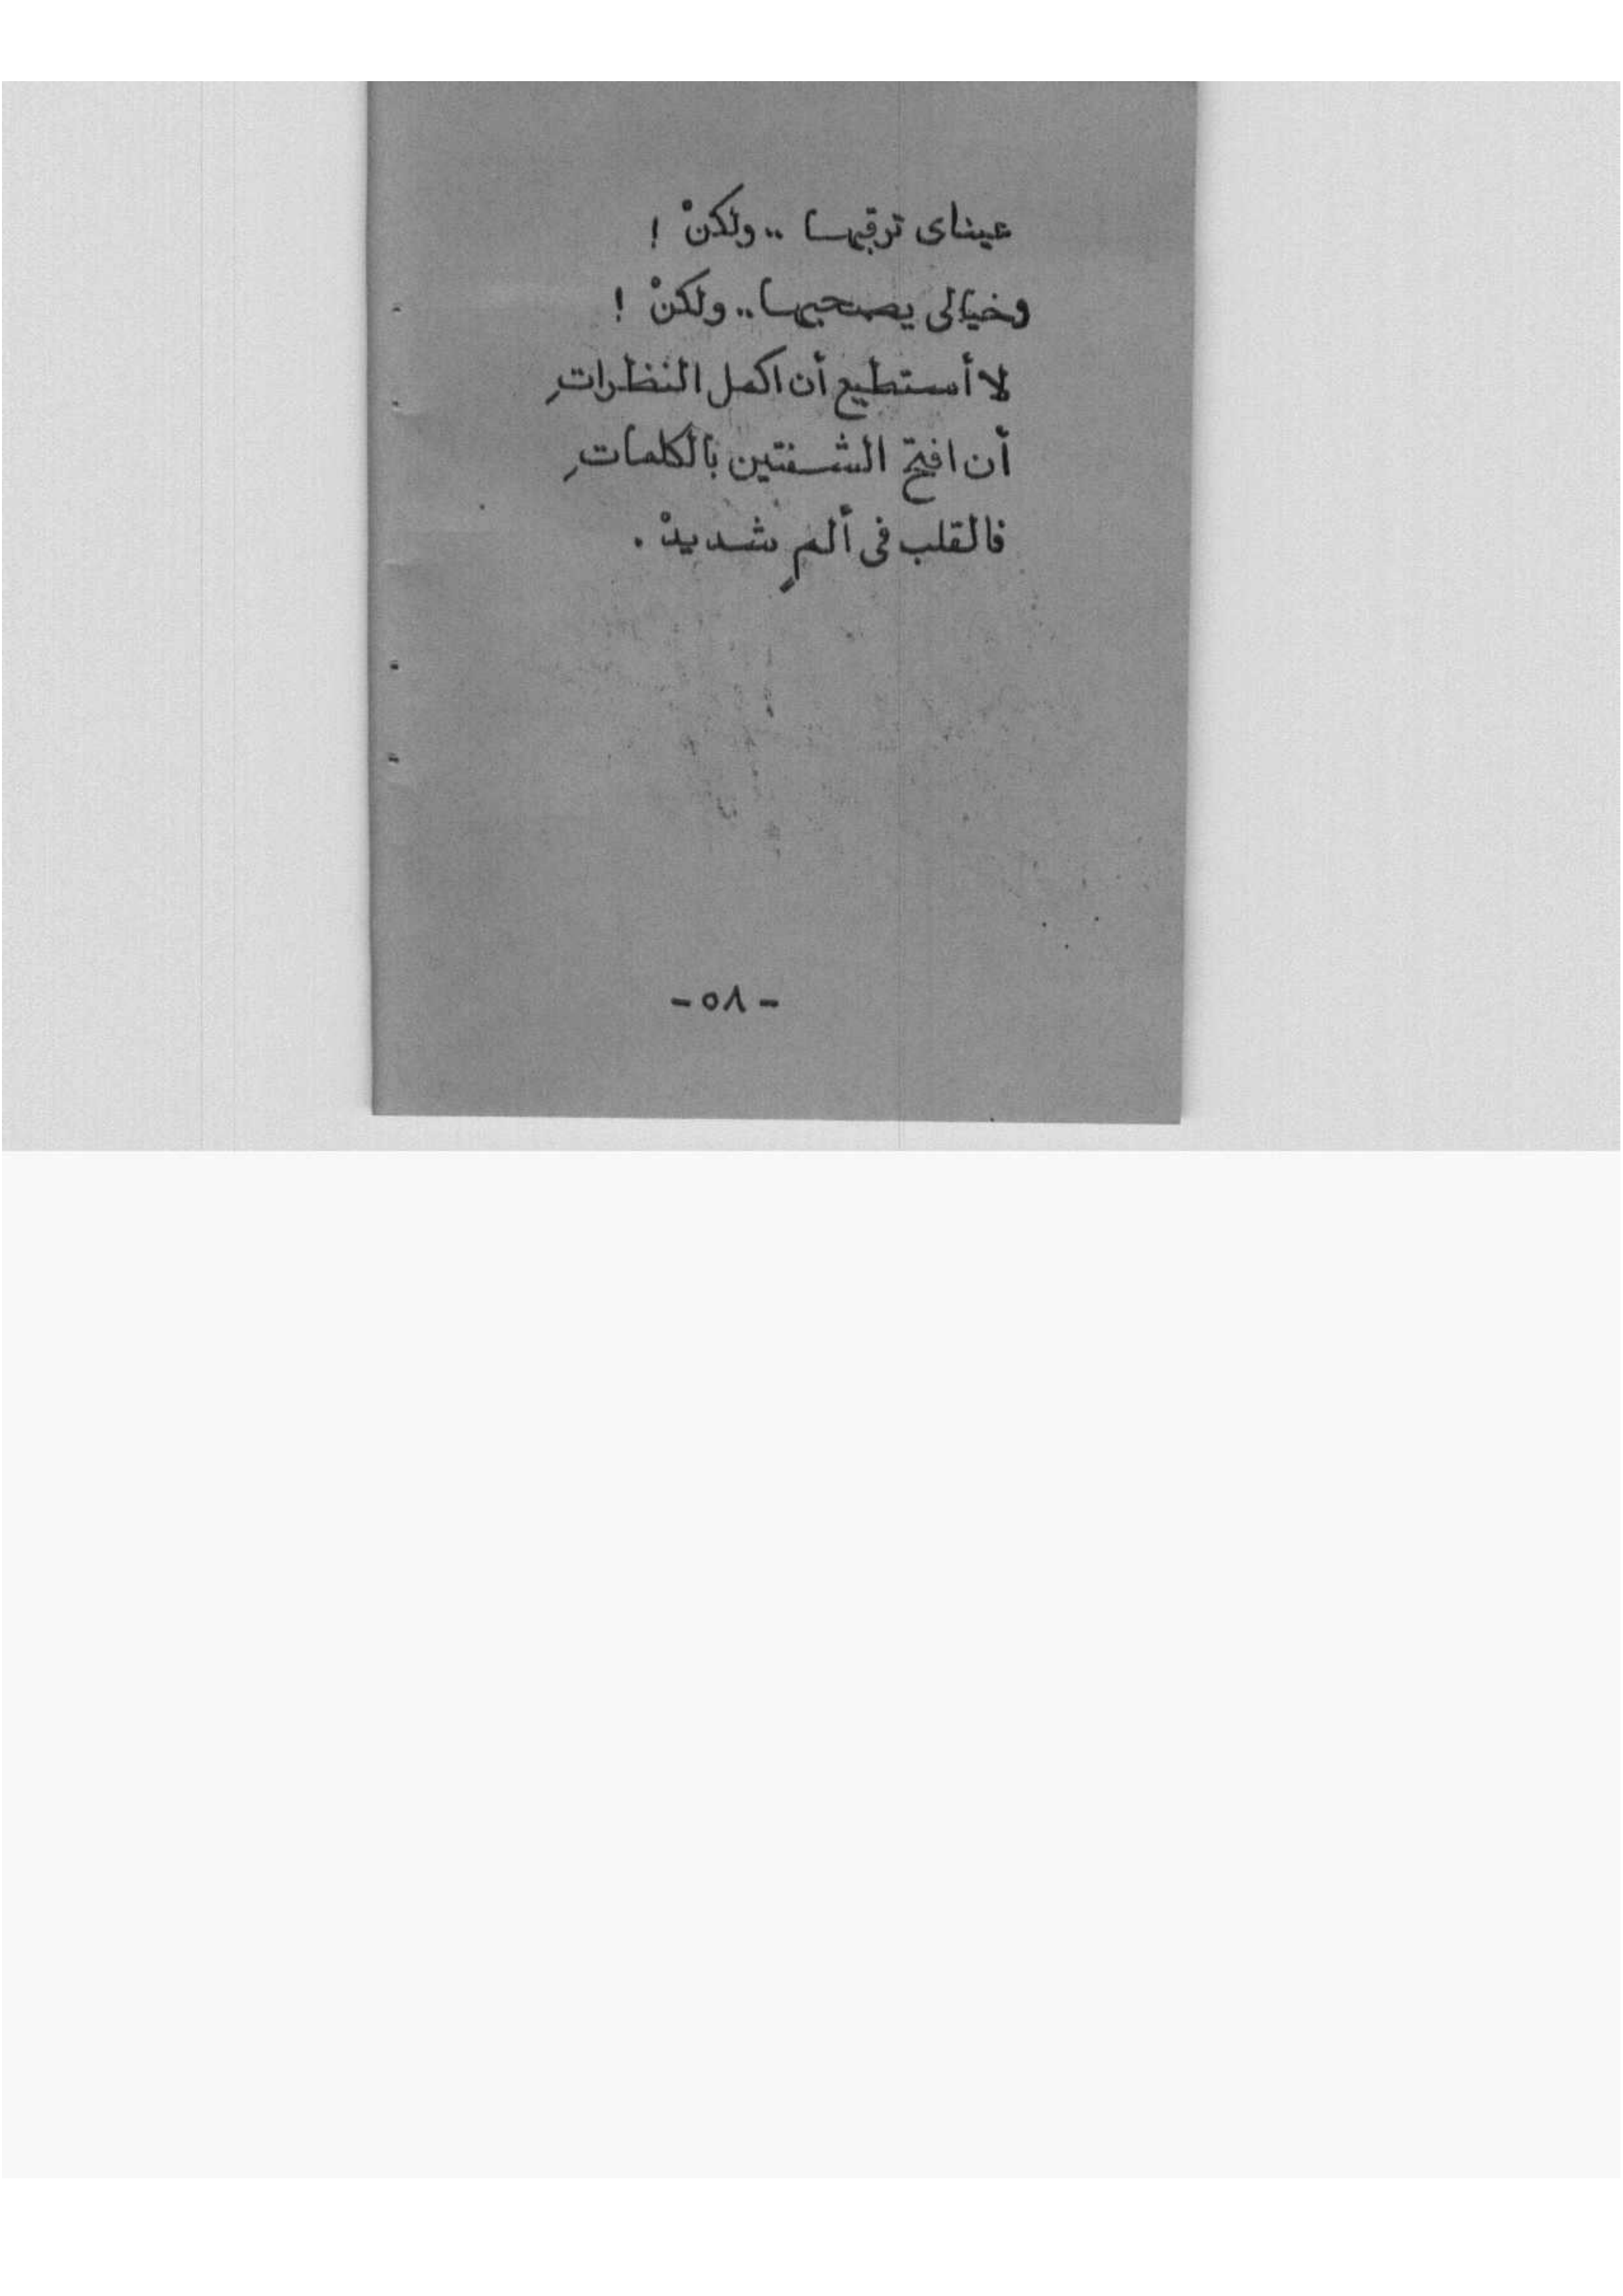 عيناى ترقبها .. ولكنْ !
وخيالى يصحبها .. ولكنْ !
لا أستطيع أن اكمل النظراتِ
أن افتح الشفتين بالكلماتِ
فالقلب فى ألمٍ شديدْ .
- ٥٨ -